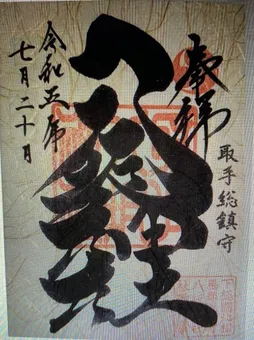 奉拝
取手総鎮守
八坂神社
令和五年
七月二十日